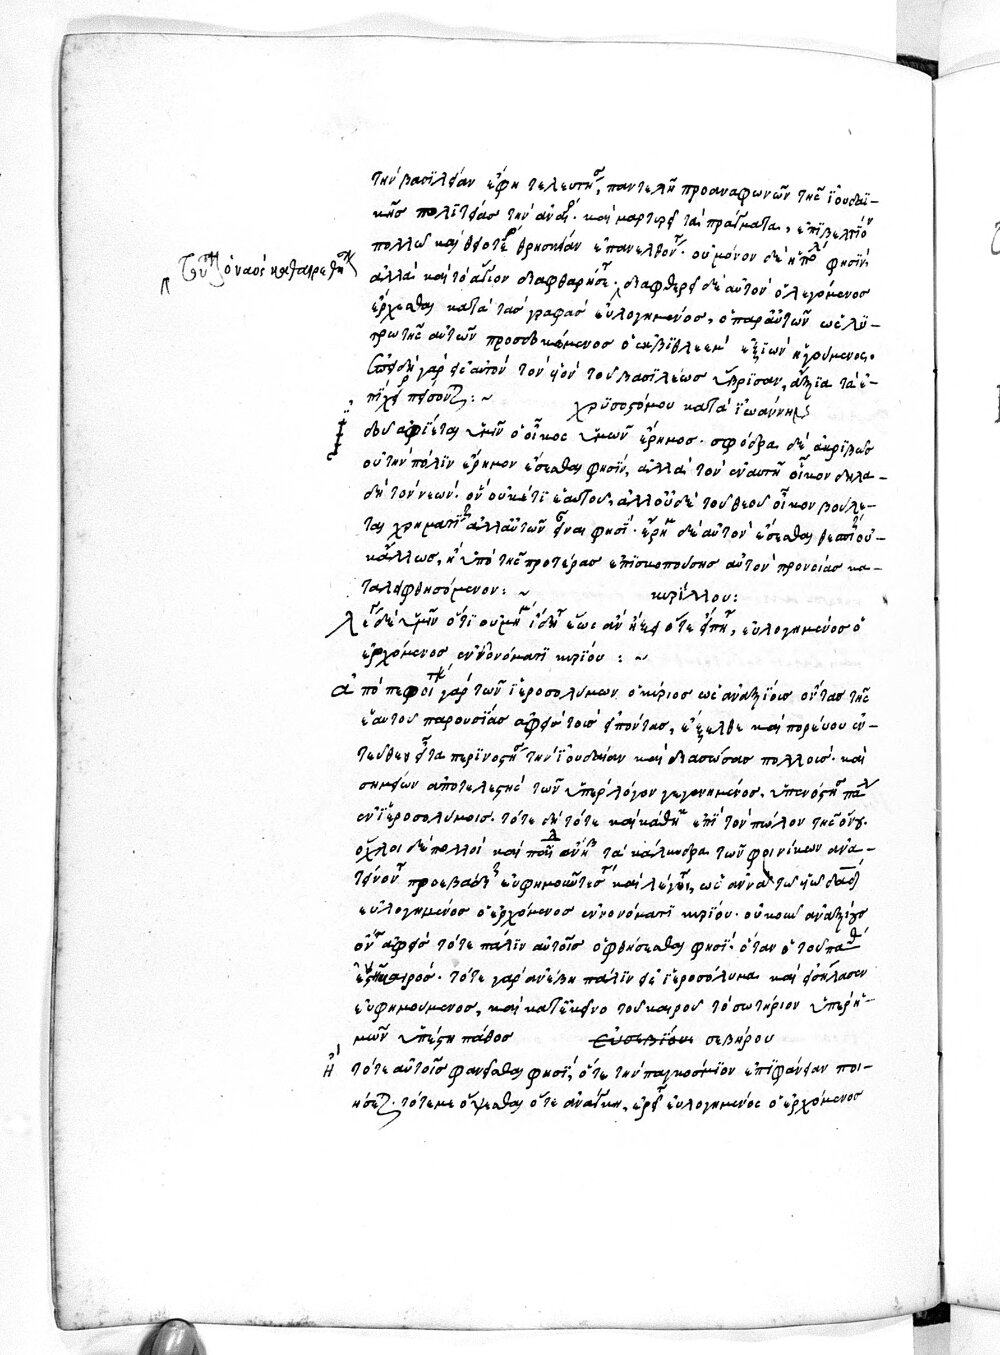 τὴν βασιλείαν ἔφη τελευτῆς, παντελῆ προαναφωνῶν τῆς ἰουδαϊ-
κῆς πολιτείας τὴν
καὶ μαρτυρεῖ τὰ πράγματα,
πολλῶ καὶ
θρησκείαν ἐπανελθοῦσα. οὐ μόνον δὲ
φησὶν
τούτ ὁ ναὸς καθαιρεθήσεται
ἀλλὰ καὶ τὸ ἅγιον διαφθαρήσεται, διαφθερεῖ δὲ αὐτὸν ὁ λεγόμενος
ἔρχεσθαι κατὰ τὰς γραφὰς εὐλογημένος, ὁ παρ' αὐτῶν ὡς λυ-
τρωτὴς αὐτῶν προσδοκώμενος ὁ ἐκ βηθλεὲμ ἐξιὼν ἡγούμενος.
ἐπειδὴ γὰρ εἰς αὐτὸν τὸν υἱὸν τοῦ βασιλέως ὕβρισαν, ἄξια τὰ ἐ-
πίχειρα πείσονται: ~ χρυσοστόμου κατὰ ἰωάννην
ἰδοὺ ἀφίεται ὑμῖν ὁ οἶκος ὑμῶν ἔρημος. σφόδρα δὲ ἀκριβῶς
οὐ τὴν πόλιν ἔρημον ἔσεσθαι φησὶν, ἀλλὰ τὸν ἐν αυτῆ οἶκον δηλα-
δὴ τὸν νεών. ὃν οὐκέτι ἑαυτοῦ, ἀλλ οὐδὲ τοῦ θεοῦ οἶκον βούλε-
ται χρηματίζειν ἀλλ αὐτῶν εἶναι φησί. ἔρημον δὲ αὐτὸν ἔσεσθαι
κάλλως, ἢ ὑπὸ τῆς προτέρας ἐπισκοπούσης αὐτὸν προνοίας κα-
ταλειφθησόμενον: ~ κυρίλλου:
λέγω δὲ ὑμῖν ὅτι οὐ μή με ἴδητε ἕως ἂν ἥξει ὅτε εἴπητε, εὐλογημένος ὁ
ἐρχόμενος ἐν ὀνόματι κυρίου : ~
ἀποπεφοίτηκε γὰρ τῶν ἱεροσολύμων ὁ κύριος ὡς ἀναξίους ὄντας τῆς
ἑαυτοῦ παρουσίας ἀφεὶς τοὺς εἰπόντας, ἔξελθε καὶ πορεύου ἐν-
τεῦθεν εἶτα περινοστήσας τὴν ἰουδαίαν καὶ διασώσας πολλοὺς. καὶ
σημείων ἀποτελεστὴς τῶν ὑπὲρ λόγον γεγενημένος, ὑπενόστησε πάλιν
ἐν ἱεροσολύμοις. τότε δὴ τότε καὶ κάθηται ἐπὶ τὸν πῶλον τῆς ὄνου.
ὄχλοι δὲ πολλοὶ καὶ
τὰ κάλυνδρα τῶν φοινίκων ἀνα-
τείνοντες προεβάδιζον εὐφημοῦντες καὶ λέγοντες, ὡς ἀννὰ τῶ υἱῶ δαδ
εὐλογημένος ὁ ἐρχόμενος ἐν ὀνόματι κυρίου. οὐκοῦν ἀναξίους
ὄντας ἀφεὶς τότε πάλιν αὐτοῖς ὀφθήσεσθαι φησὶ. ὅταν ὁ τοῦ πάθους
ἐνστῆ καιρός. τότε γὰρ ἀνέβη πάλιν εἰς ἱεροσόλυμα καὶ εἰσήλασεν
εὐφημούμενος, καὶ κατ ἐκεῖνο τοῦ καιροῦ τὸ σωτήριον ὑπὲρ ἡ-
μῶν ὑπέστη πάθος εὐσεβίου σεβήρου
ἢ τότε αὐτοῖς φανεῖσθαι φησὶ, ὅτε τὴν παγκόσμιον ἐπιφάνειαν ποι-
ήσεται. τότε με ὄψεσθαι ὅτε ἀνάγκη, ἐρεῖτε εὐλογημένος ὁ ἐρχόμενος